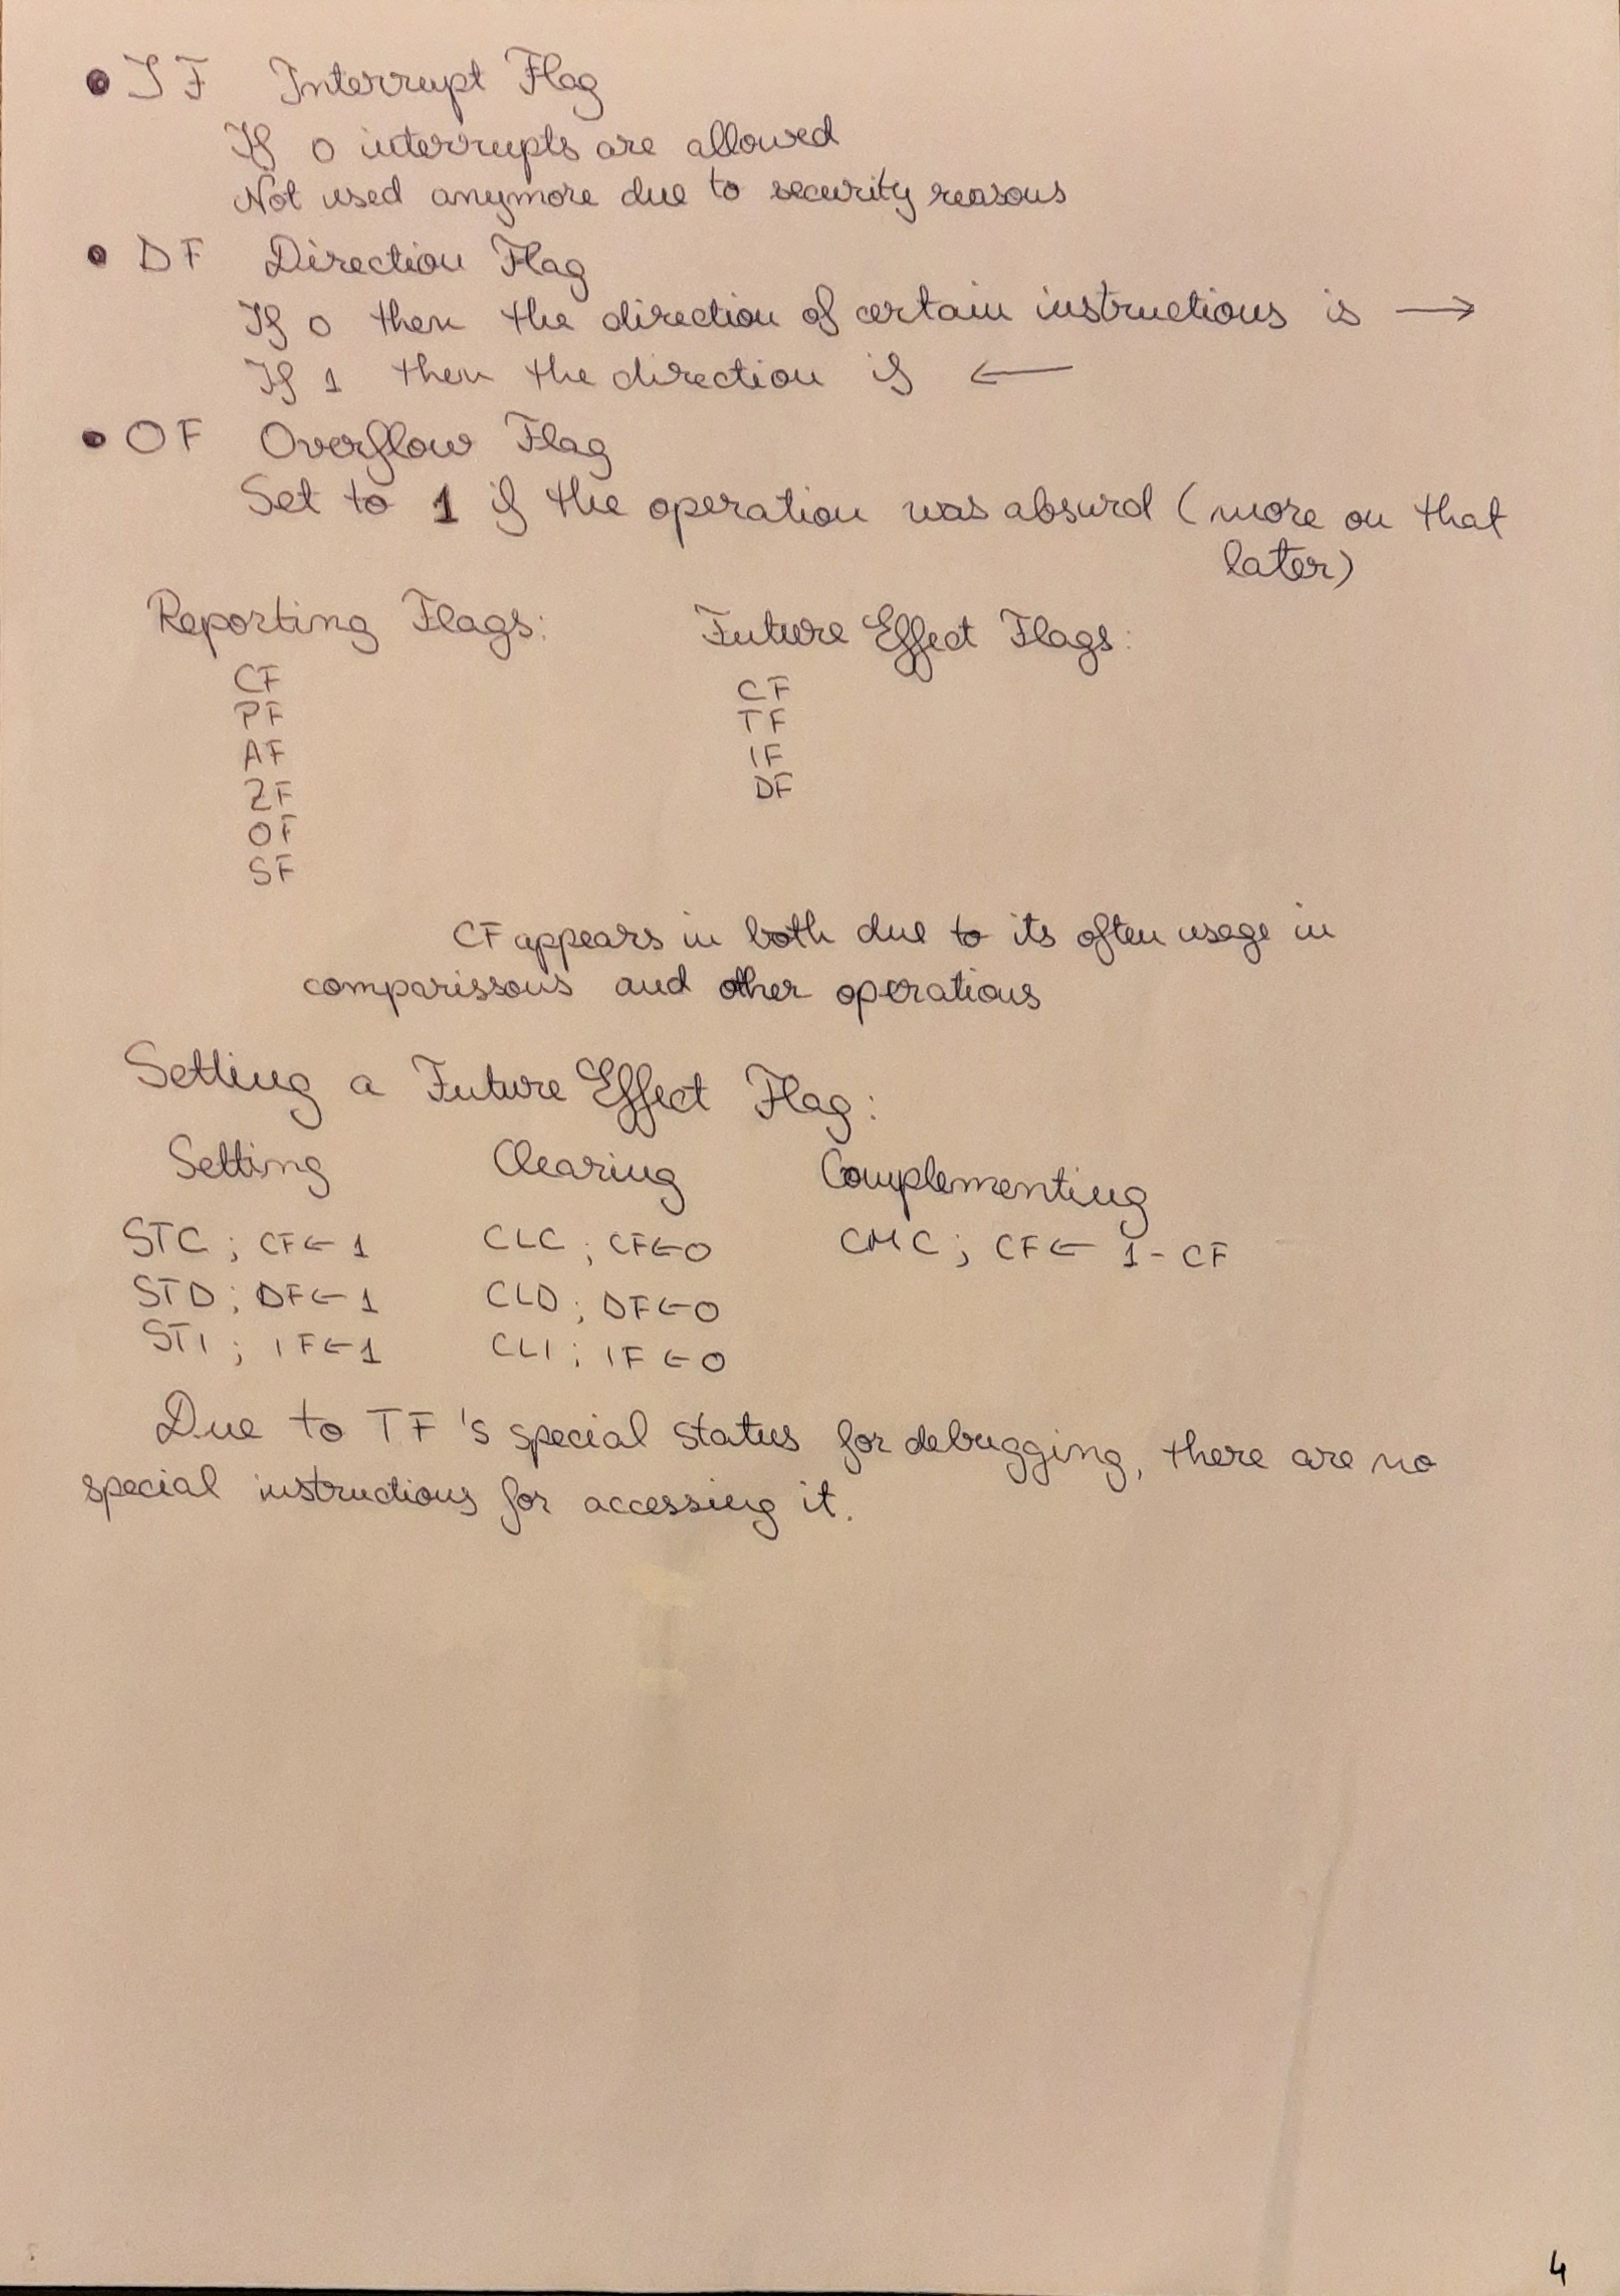 • IF Interrupt Flag
If 0 interrupts are allowed
Not used anymore due to security reasons
• DF Direction Flag
If 0 then the direction of certain instructions is →
If 1 then the direction if ←
• OF Overflow Flag
Set to 1 if the operation was absurd (more on that
later)
Reporting Flags: Future Effect Flags:
CF CF
PF TF
AF IF
ZF DF
OF
SF
CF appears in both due to its often usage in
comparissons and other operations
Setting a Future Effect Flag:
Setting Clearing Complementing
STC ; CF← 1 CLC ; CF←0 CMC ; CF← 1 - CF
STD ; DF← 1 CLD ; DF←0
STI ; IF←1 CLI ; IF ←0
Due to TF's special status for debugging, there are no
special instructions for accessing it.
4